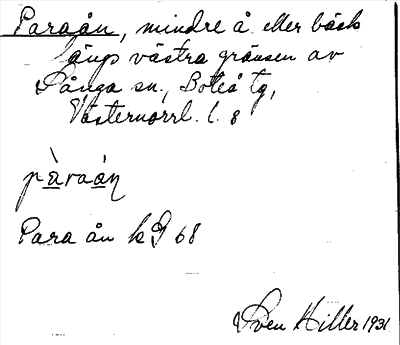 Paraån, mindre å eller bäck
längs västra gränsen av
Sånga sn., Boteå tg,
Västernorrl. l. 8
pàraán
Para ån k G 68
Sven Hiller 1931